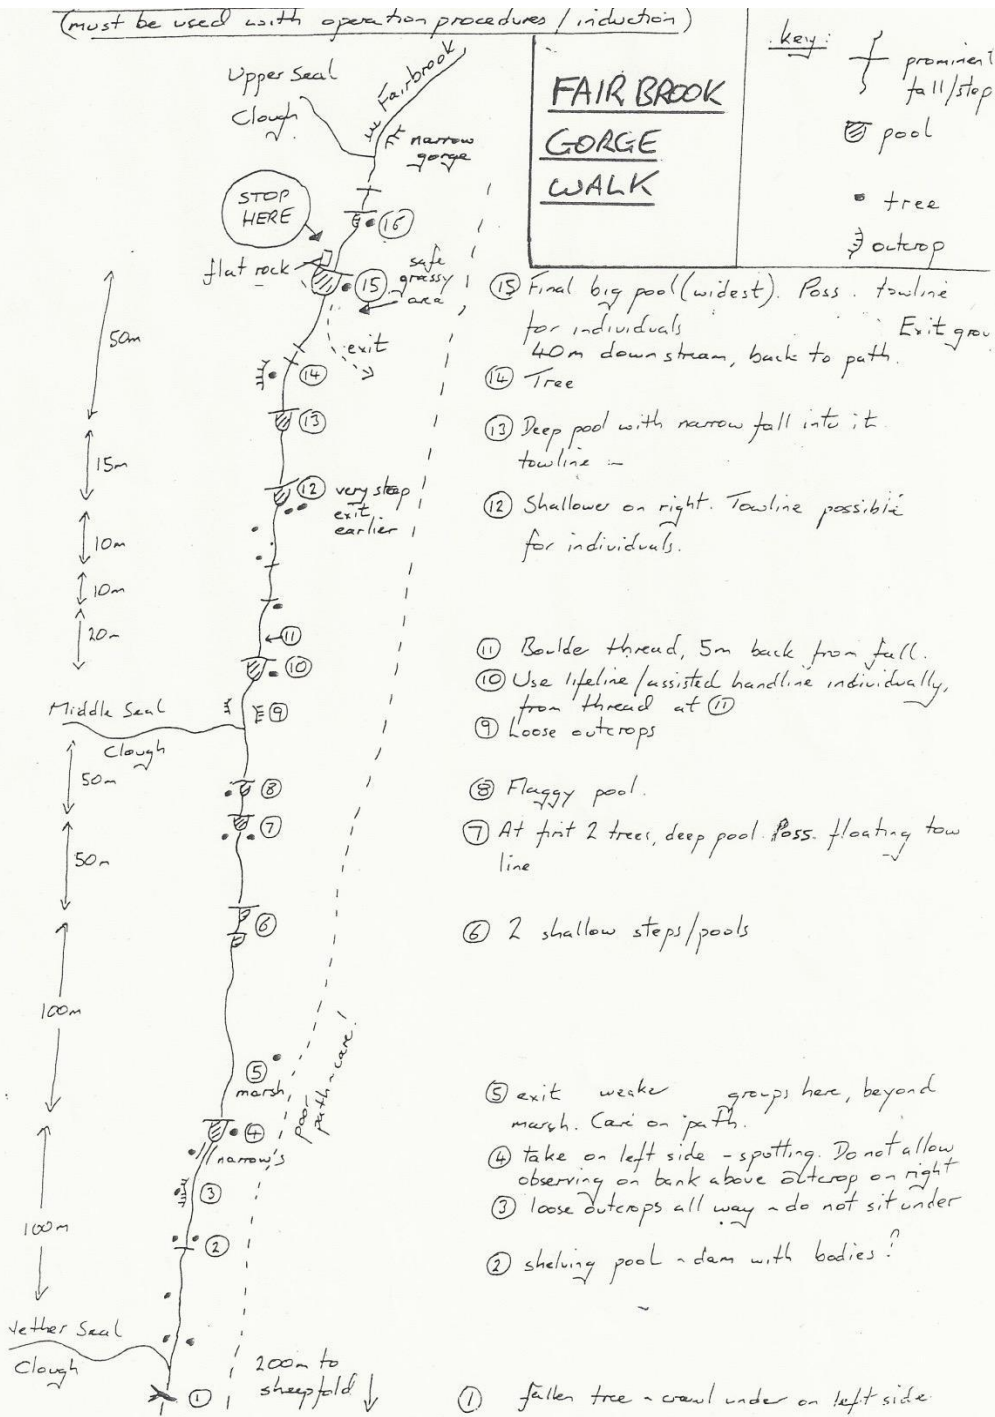 (must be used with operation procedures / induction)
FAIRBROOK
GORGE
WALK
key:
prominent
fall/step
pool
tree
outcrop
Upper Seal
Clough
Fairbrook
narrow
gorge
STOP
HERE
16
flat rock
15
safe
grassy
area
50m
exit
14
13
15m
12 very steep
exit
earlier
10m
10m
20m
11
10
Middle Seal
Clough
9
50m
8
7
50m
6
100m
5
marsh
poor
path - care!
4
narrow's
3
100m
2
Nether Seal
Clough
1
200m to
sheepfold
15 Final big pool (widest). Poss. towline
for individuals
Exit grou
40m downstream, back to path.
14 Tree
13 Deep pool with narrow fall into it
towline -
12 Shallower on right. Towline possible
for individuals.
11 Boulder thread, 5m back from fall.
10 Use lifeline/assisted handline individually,
from thread at 11
9 Loose outcrops
8 Flaggy pool.
7 At first 2 trees, deep pool. Poss. floating tow
line
6 2 shallow steps/pools
5 exit weaker groups here, beyond
marsh. Care on path.
4 take on left side - spotting. Do not allow
observing on bank above outcrop on right
3 loose outcrops all way - do not sit under
2 shelving pool - dam with bodies?
1 fallen tree - crawl under on left side